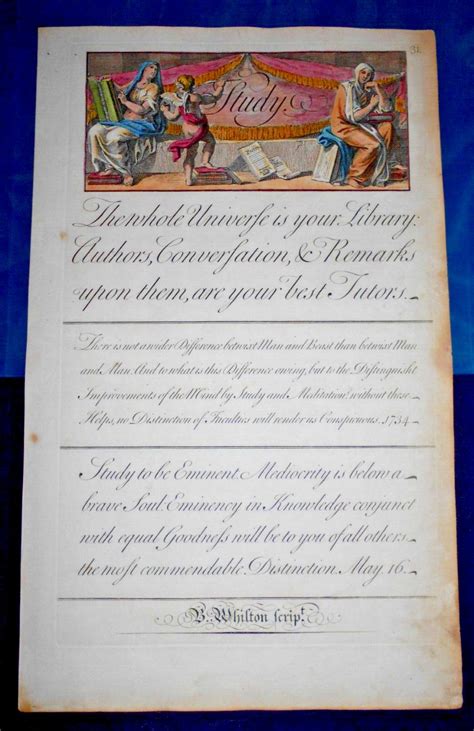 32
Study.
The whole Universe is your Library:
Authors, Conversation, & Remarks
upon them, are your best Tutors.
There is not a wider Difference betwixt Man and Beast than betwixt Man
and Man. And to what is this Difference owing, but to the Distinguisht
Improvements of the Mind by Study and Meditation? without these
Helps, no Distinction of Faculties will render us Conspicuous. 1734
Study to be Eminent. Mediocrity is below a
brave Soul. Eminency in Knowledge conjunct
with equal Goodness will be to you of all others
the most commendable Distinction. May. 16
B. Whilton scrip.t